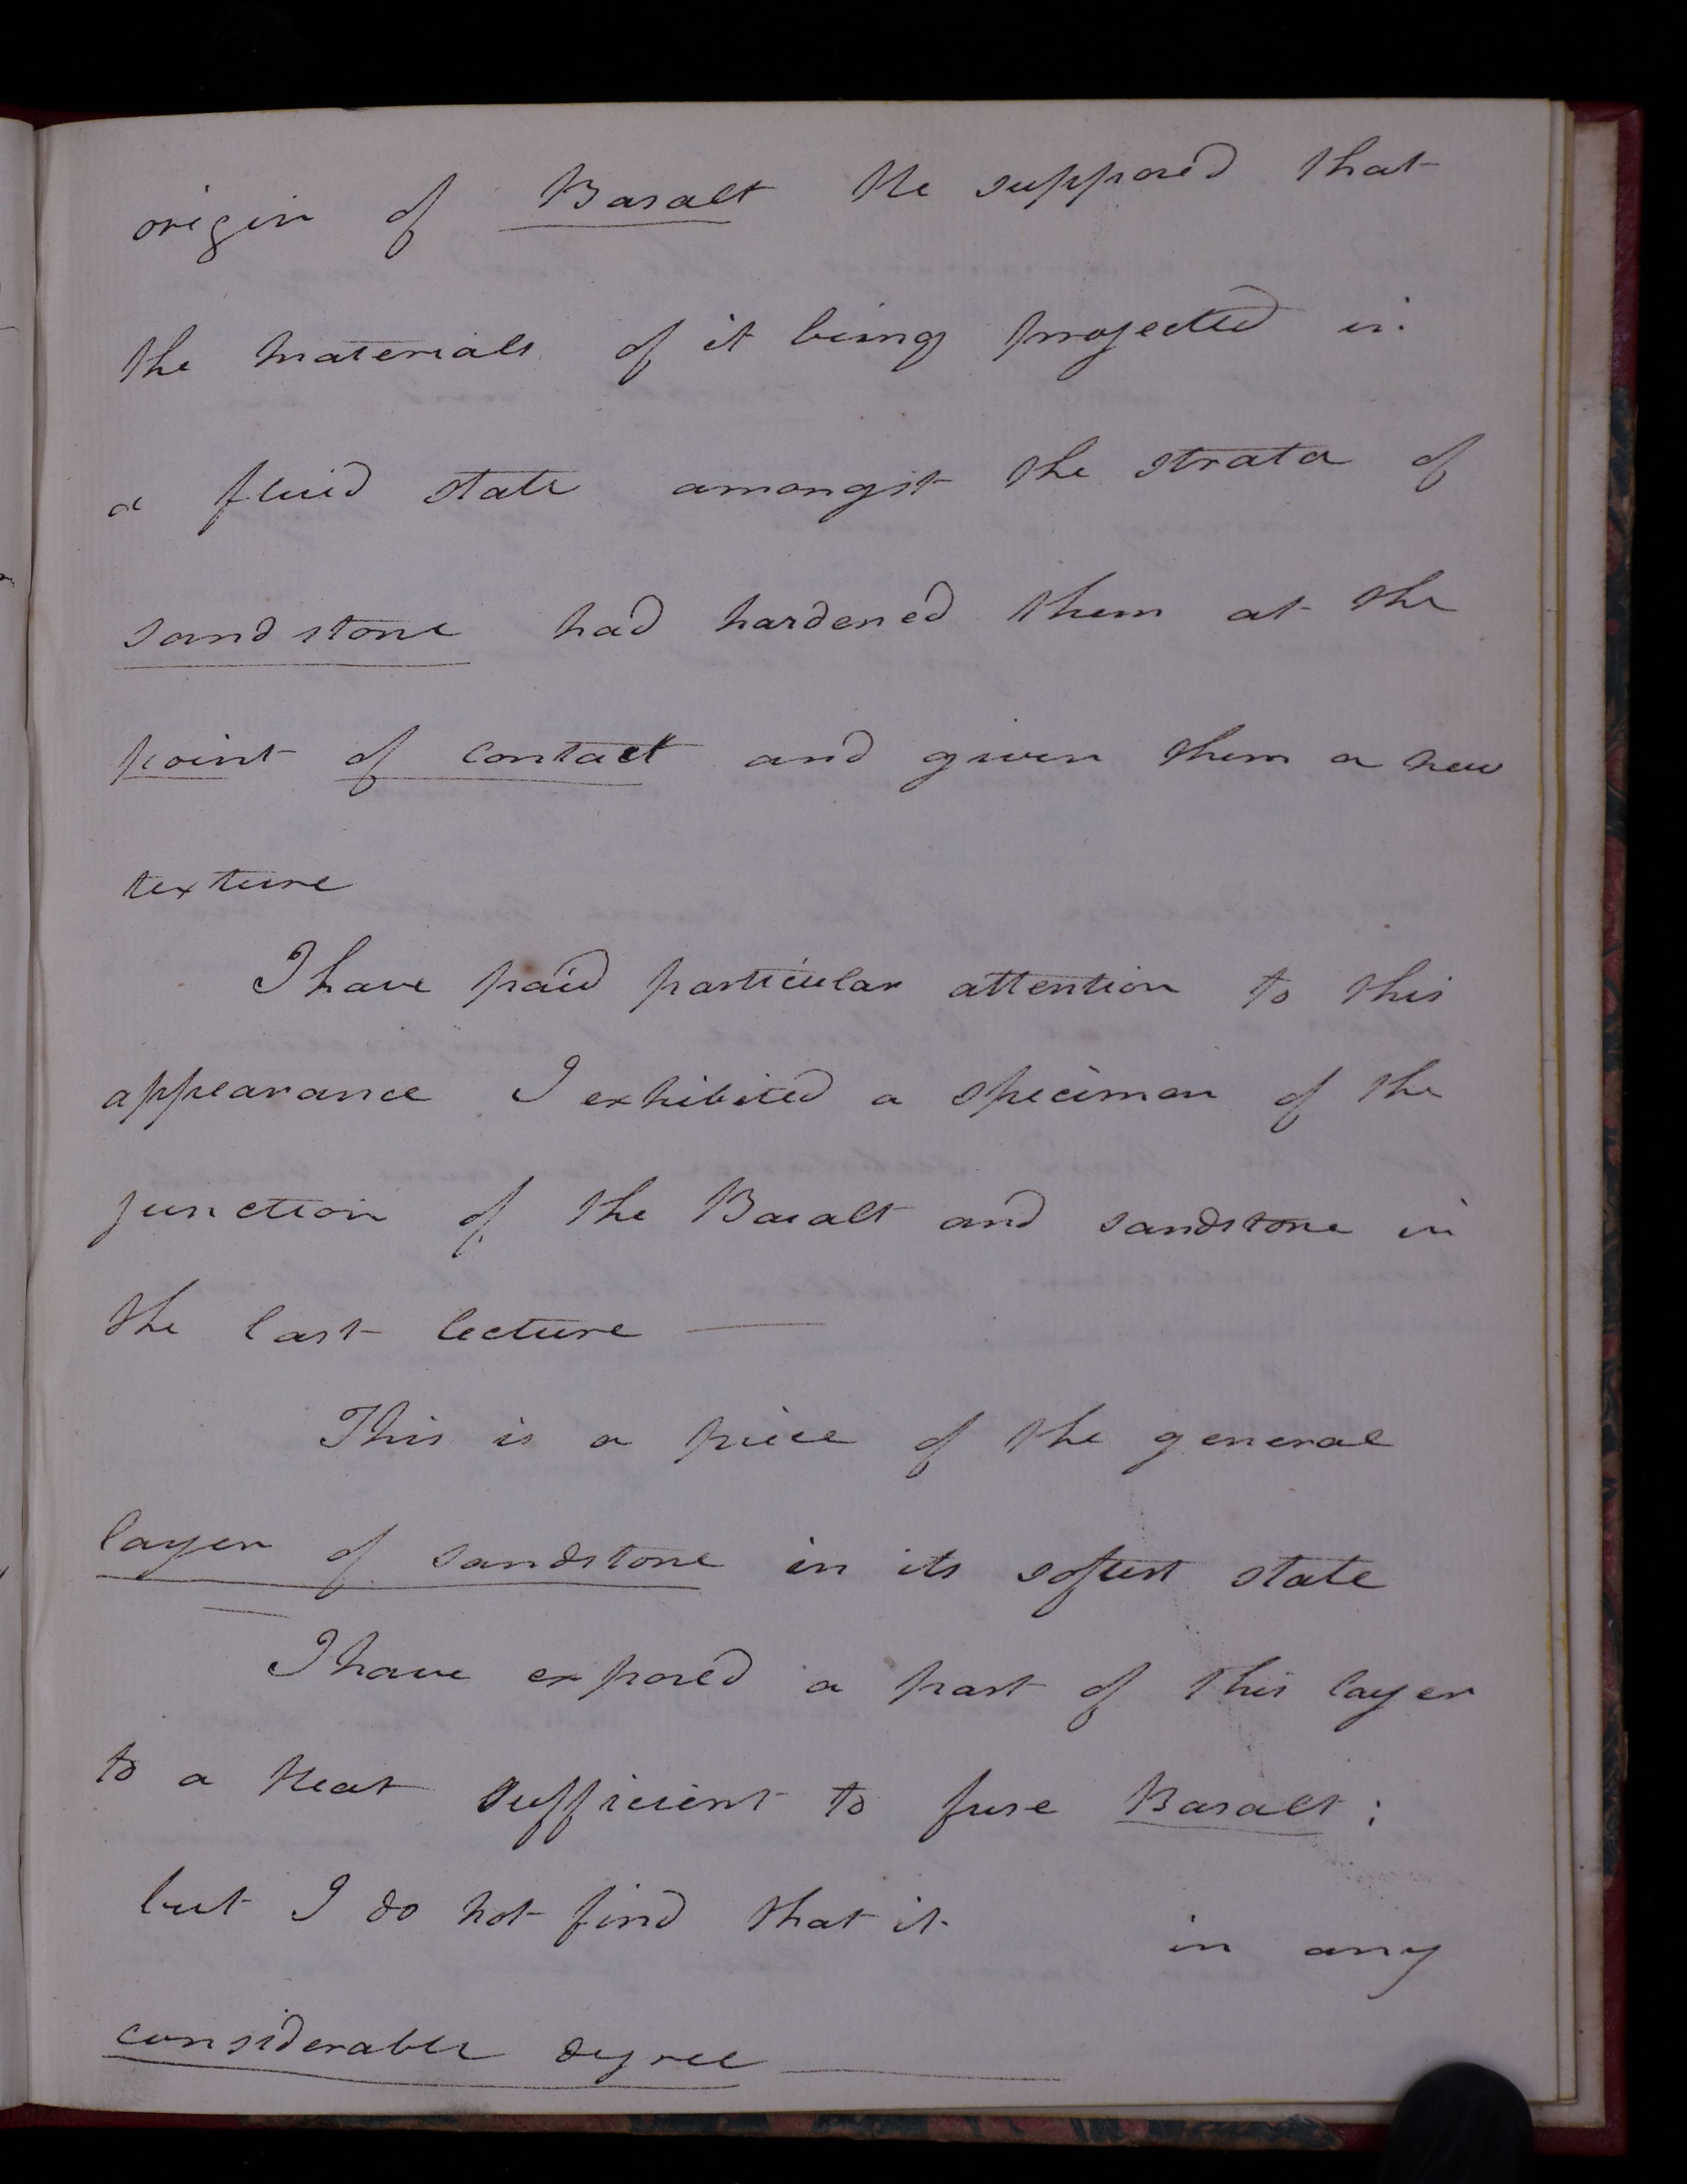 origin of Basalt He supposed that
the materials of it being projected in
a fluid state amongst the strata of
sandstone had hardened them at the
point of contact and given them a new
texture
I have paid particular attention to this
appearance I exhibited a specimen of the
junction of the Basalt and sandstone in
the last lecture —
This is a piece of the general
layer of sandstone in its softest state
I have exposed a part of this layer
to a Heat sufficient to fuse Basalt:
but I do not find that it in any
considerable degree —